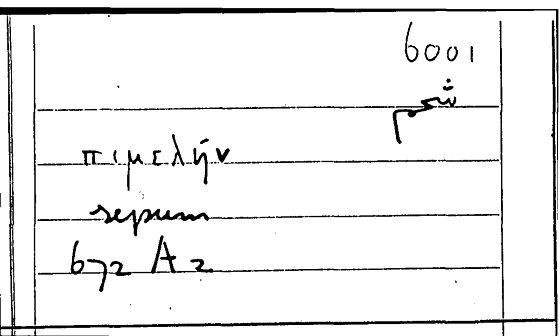 6001
πιμελήν
sepum
672 A 2